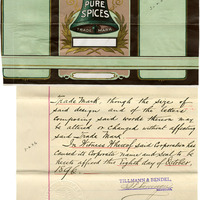 PURE
SPICES
TRADE MARK
Trade Mark, though the size of
said design and of the letters
composing said words thereon may
be altered or changed without affecting
said Trade Mark.
In Witness Whereof said Corporation has
caused its Corporate name and seal to be
hereto affixed this Eighth day of October,
1896.
TILLMANN & BENDEL,